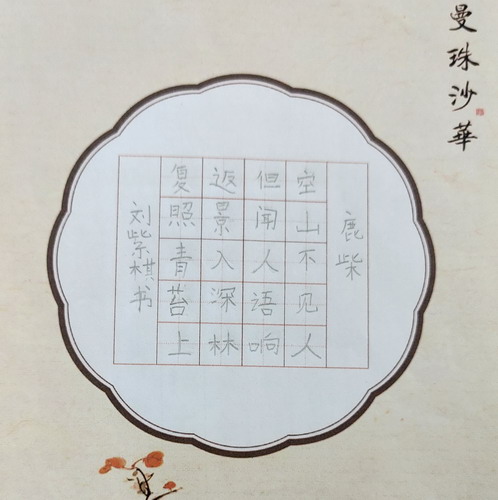 曼珠沙華
鹿柴
空山不见人
但闻人语响
返景入深林
复照青苔上
刘紫棋书